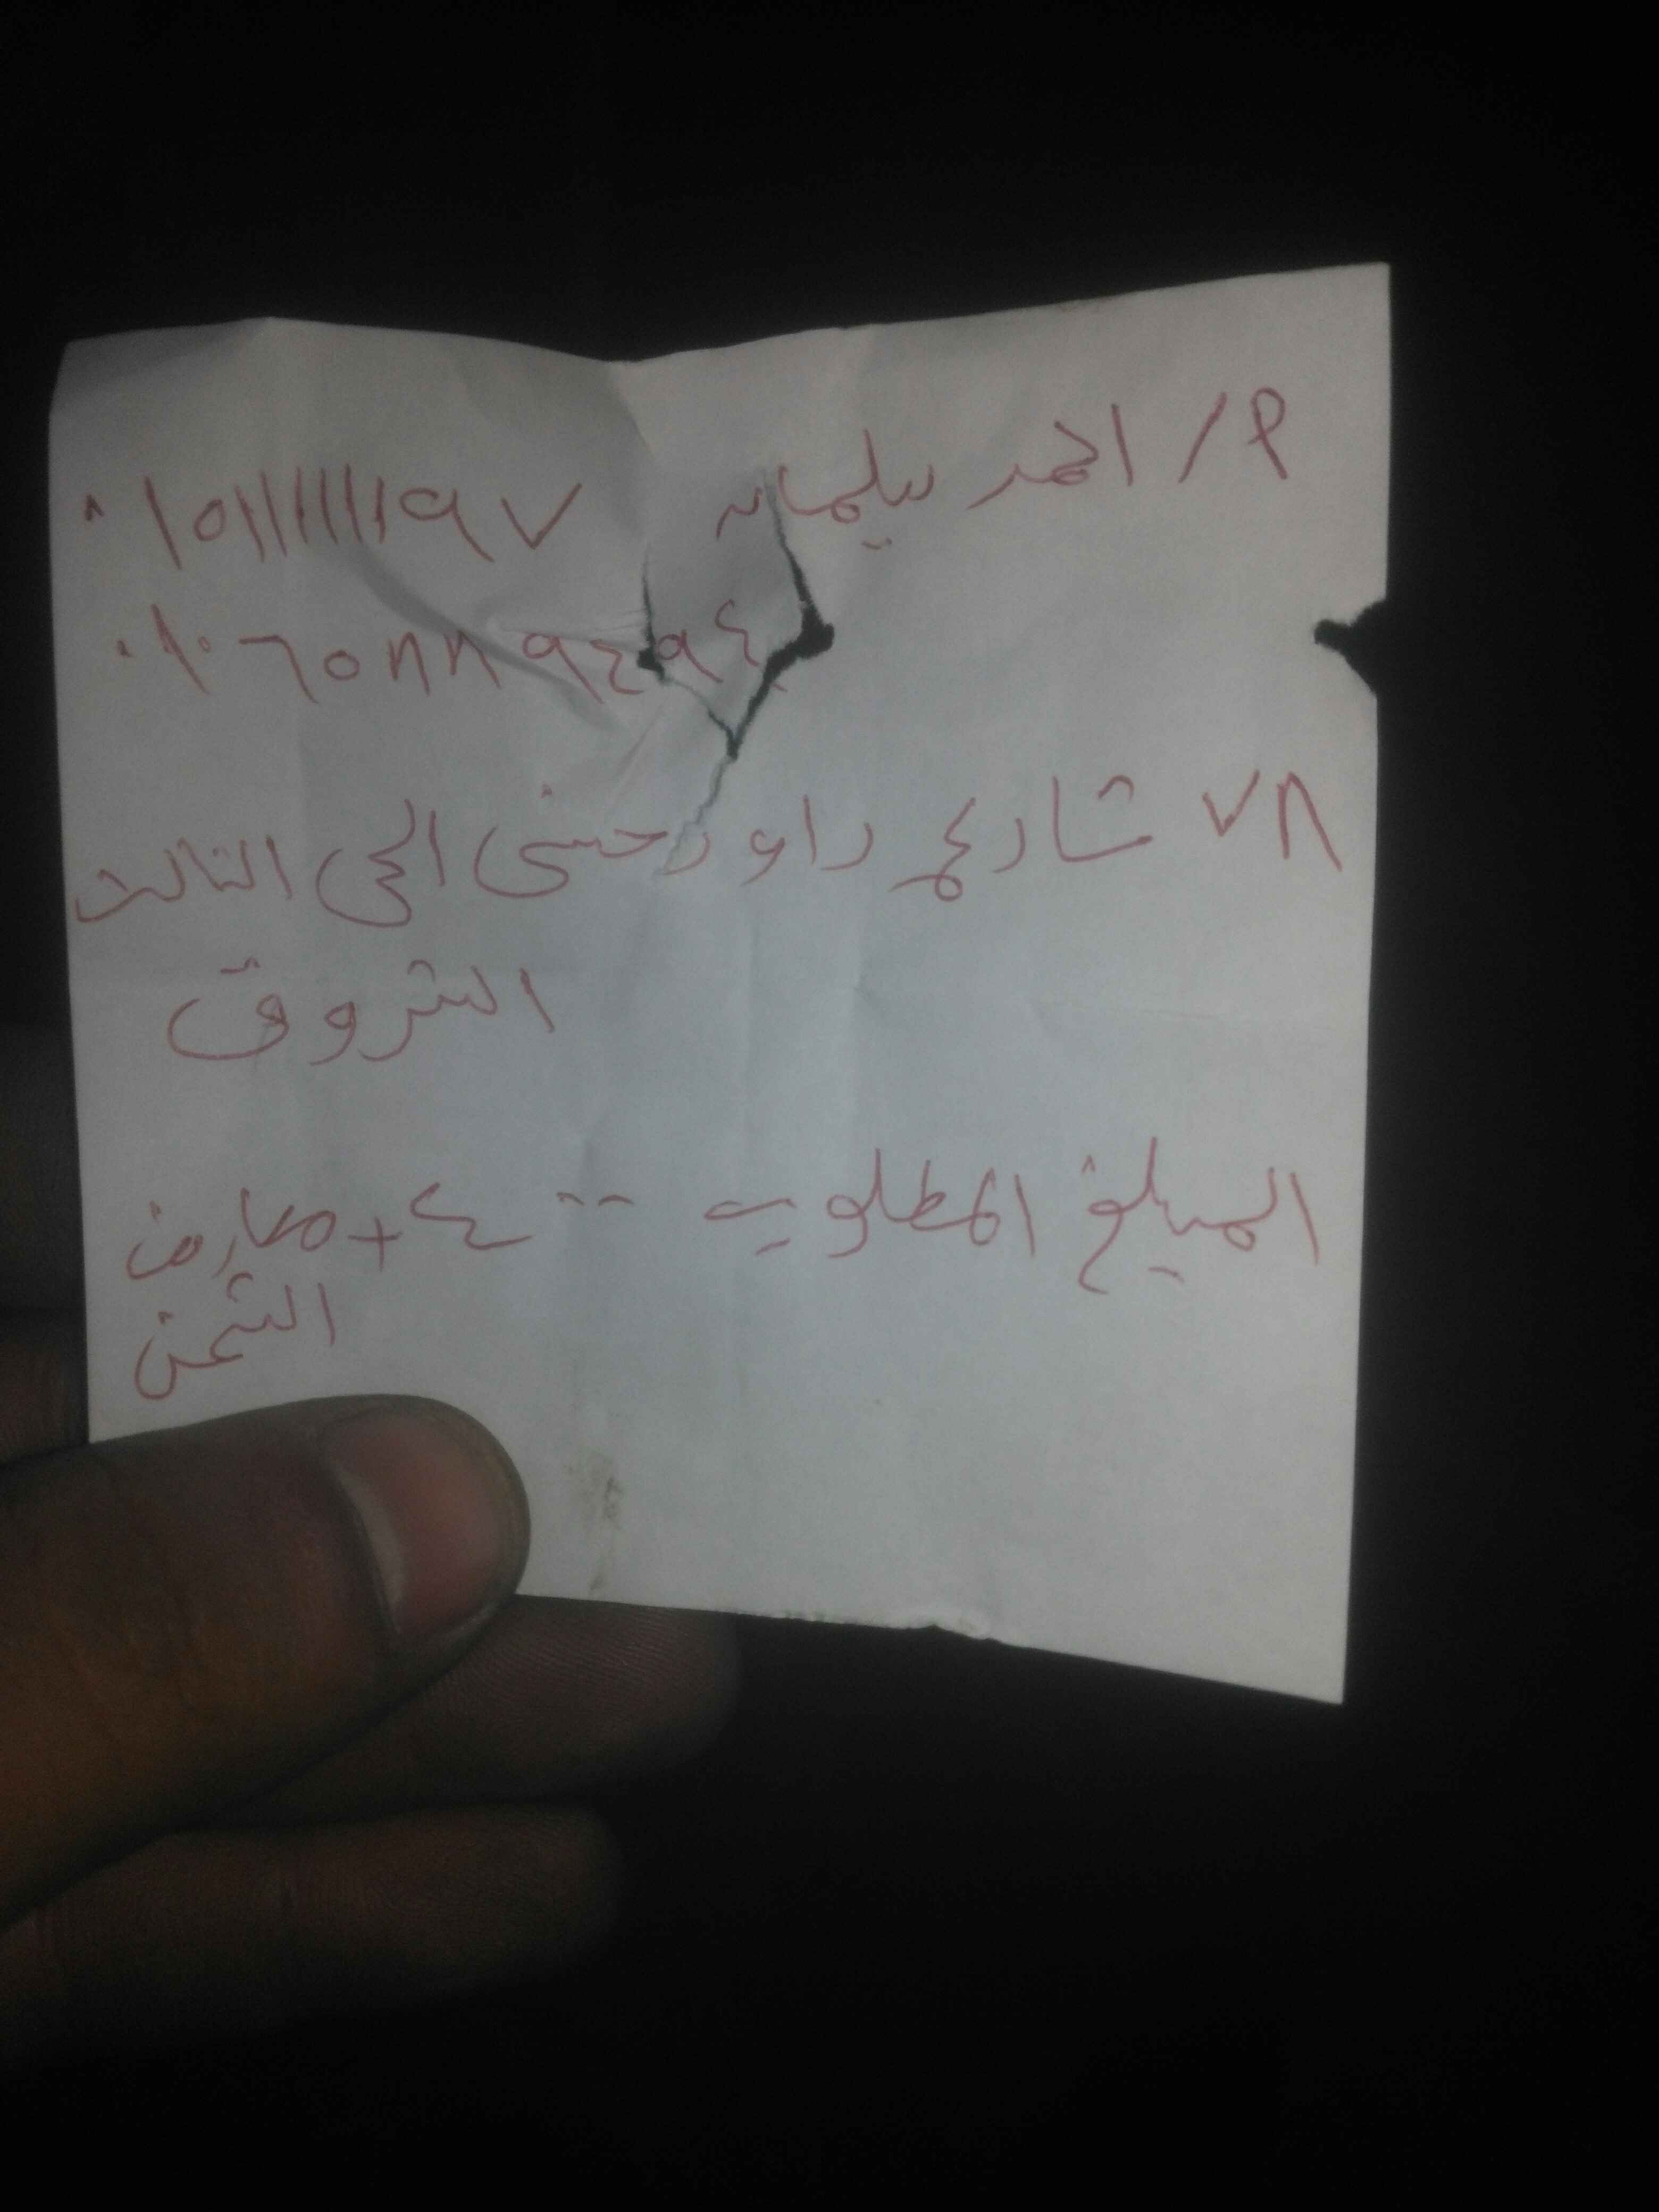 م/ احمد سليمان ٠١٥١١١١١١٩٧
٠١٠٦٥٨٨٩٤٩٤
٧٨ شارع داود حسنى الحى الثالث
الشروق
المبلغ المطلوب ٤٠٠ + مصارف
الشحن